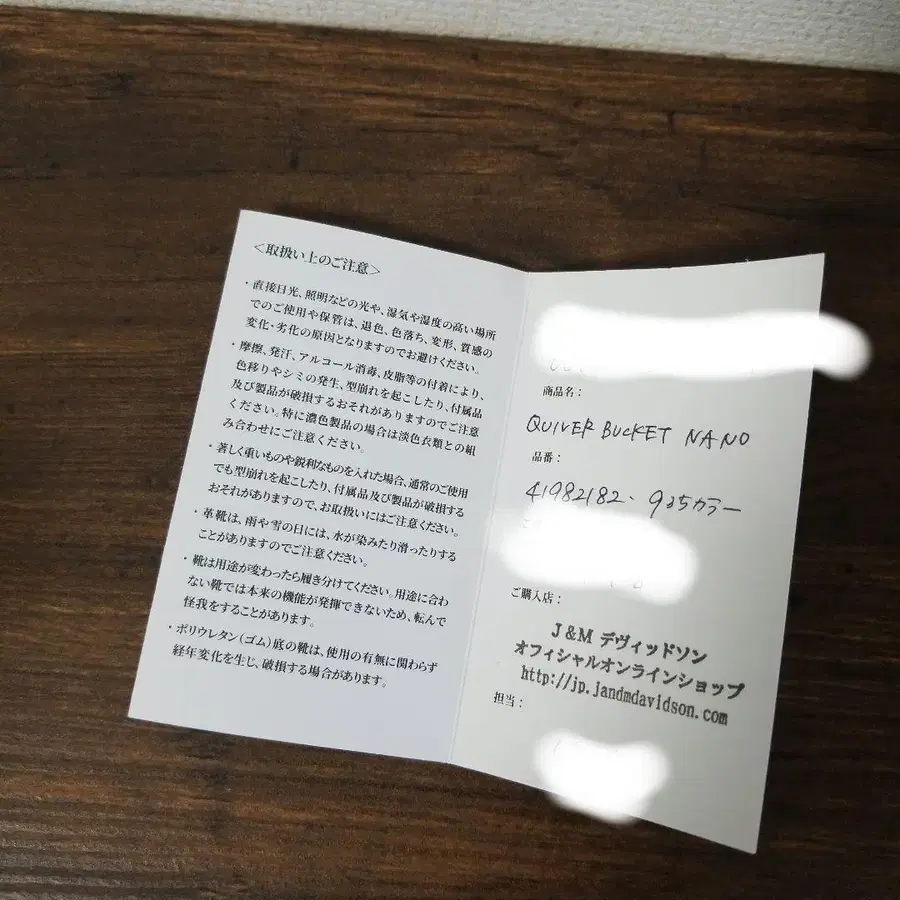 ＜取扱い上のご注意＞
・直接日光、照明などの光や、湿気や湿度の高い場所
でのご使用や保管は、退色、色落ち、変形、質感の
変化・劣化の原因となりますのでお避けください。
・摩擦、発汗、アルコール消毒、皮脂等の付着により、
色移りやシミの発生、型崩れを起こしたり、付属品
及び製品が破損するおそれがありますのでご注意
ください。特に濃色製品の場合は淡色衣類との組
み合わせにご注意ください。
・著しく重いものや鋭利なものを入れた場合、通常のご使用
でも型崩れを起こしたり、付属品及び製品が破損する
おそれがありますので、お取扱いにはご注意ください。
・革靴は、雨や雪の日には、水が染みたり滑ったりする
ことがありますのでご注意ください。
・靴は用途が変わったら履き分けてください。用途に合わ
ない靴では本来の機能が発揮できないため、転んで
怪我をすることがあります。
・ポリウレタン（ゴム）底の靴は、使用の有無に関わらず
経年変化を生じ、破損する場合があります。
商品名：
QUIVER BUCKET NANO
品番：
41982182. 935カラー
ご購入店：
J&M デヴィッドソン
オフィシャルオンラインショップ
http://jp.jandmdavidson.com
担当：